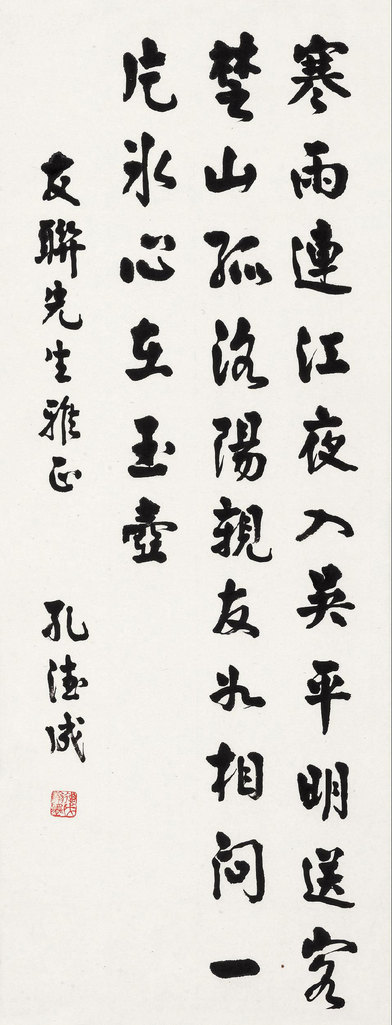 寒雨連江夜入吴平明送客
楚山孤洛陽親友如相問一
片氷心在玉壺
友聯先生雅正
孔德成